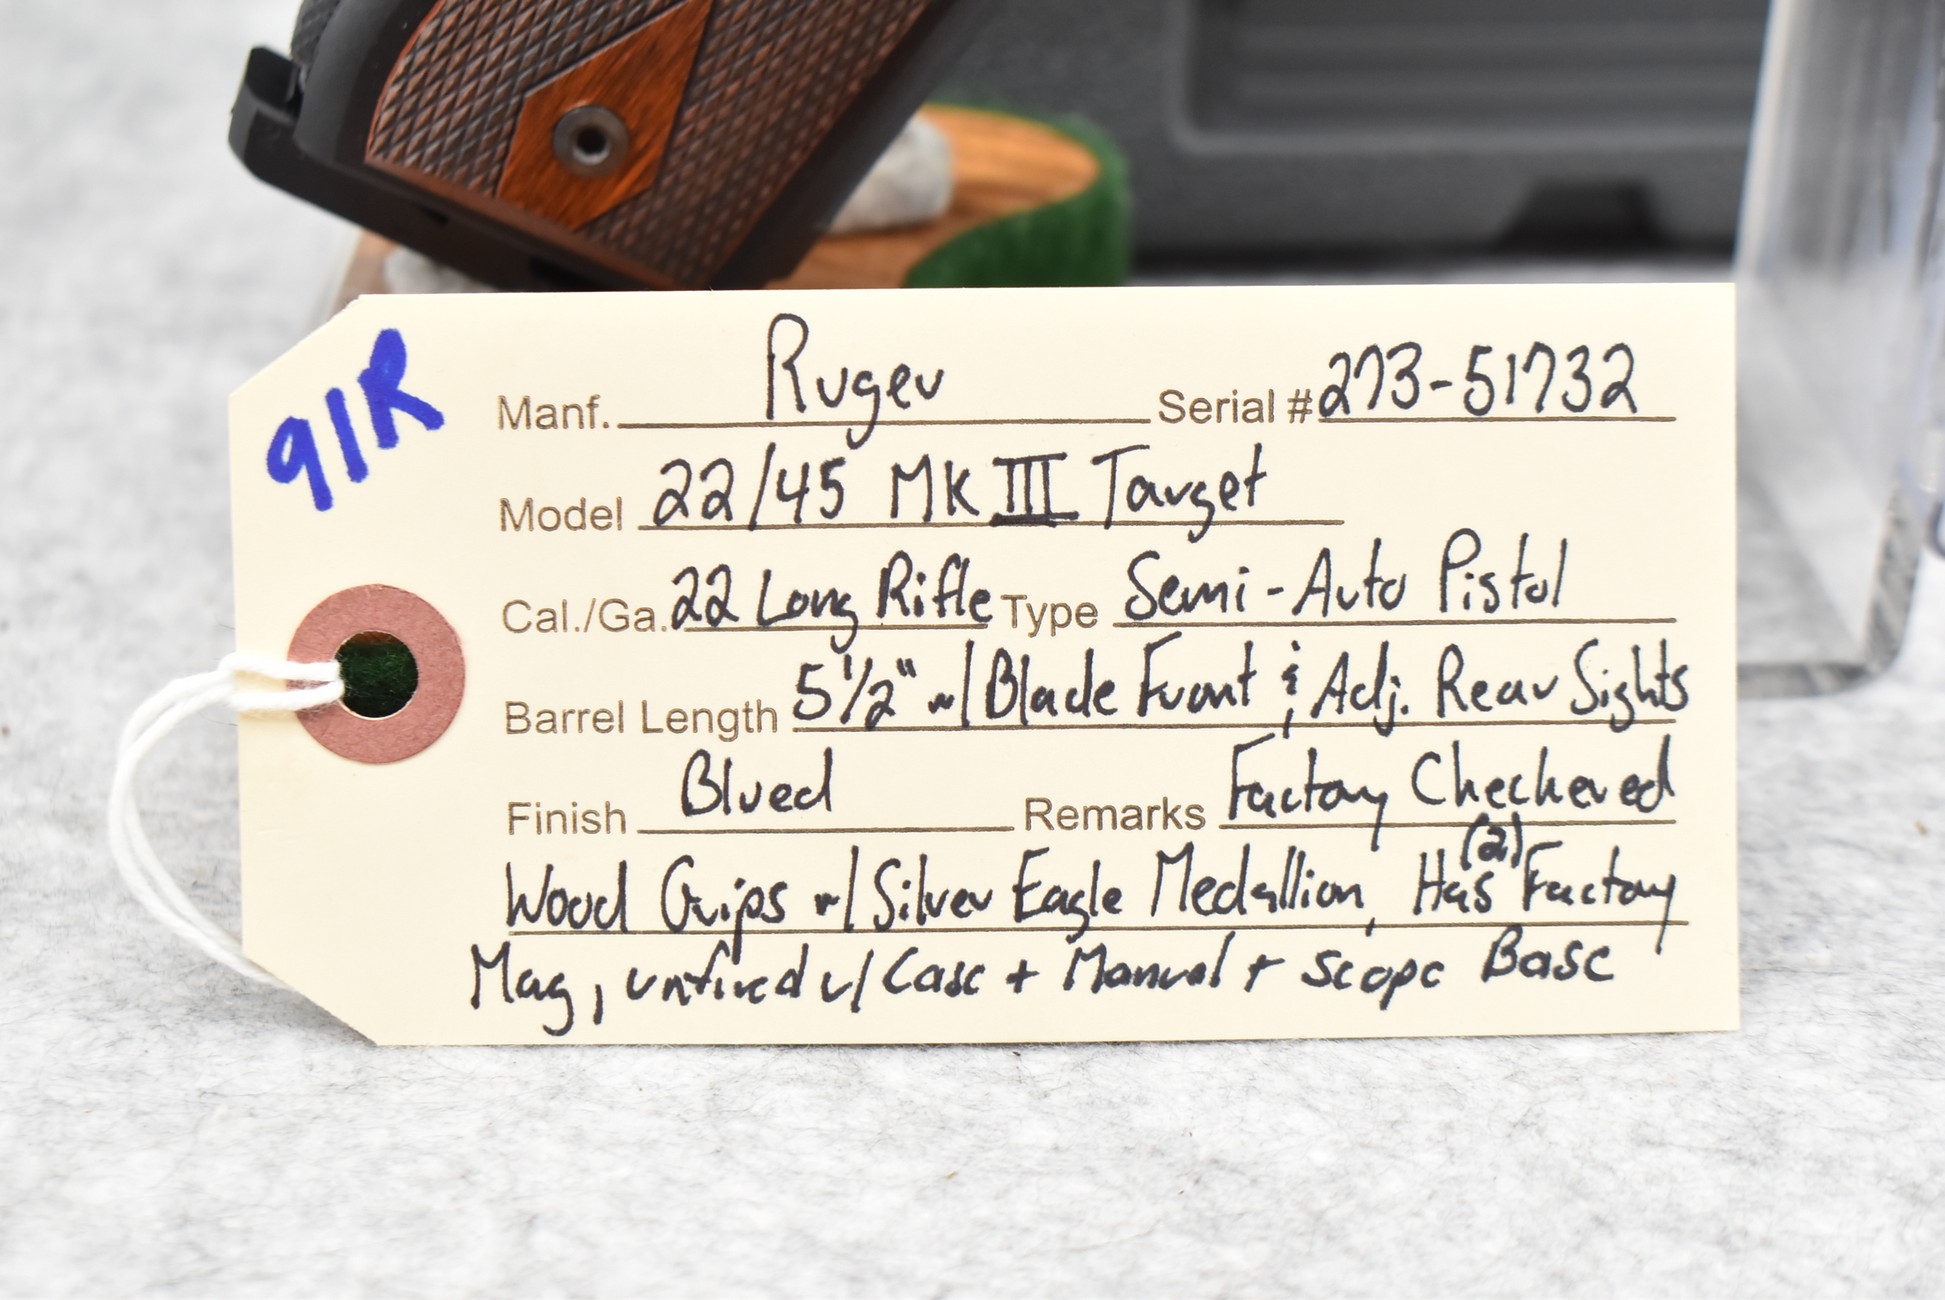 91R
Manf. Ruger Serial # 273-51732
Model 22/45 MK III Target
Cal./Ga. 22 Long Rifle Type Semi-Auto Pistol
Barrel Length 5 1/2" w/ Blade Front & Adj. Rear Sights
Finish Blued Remarks Factory Checkered
Wood Grips w/ Silver Eagle Medallion, Has (2) Factory
Mag, unfired w/ Case + Manual + Scope Base